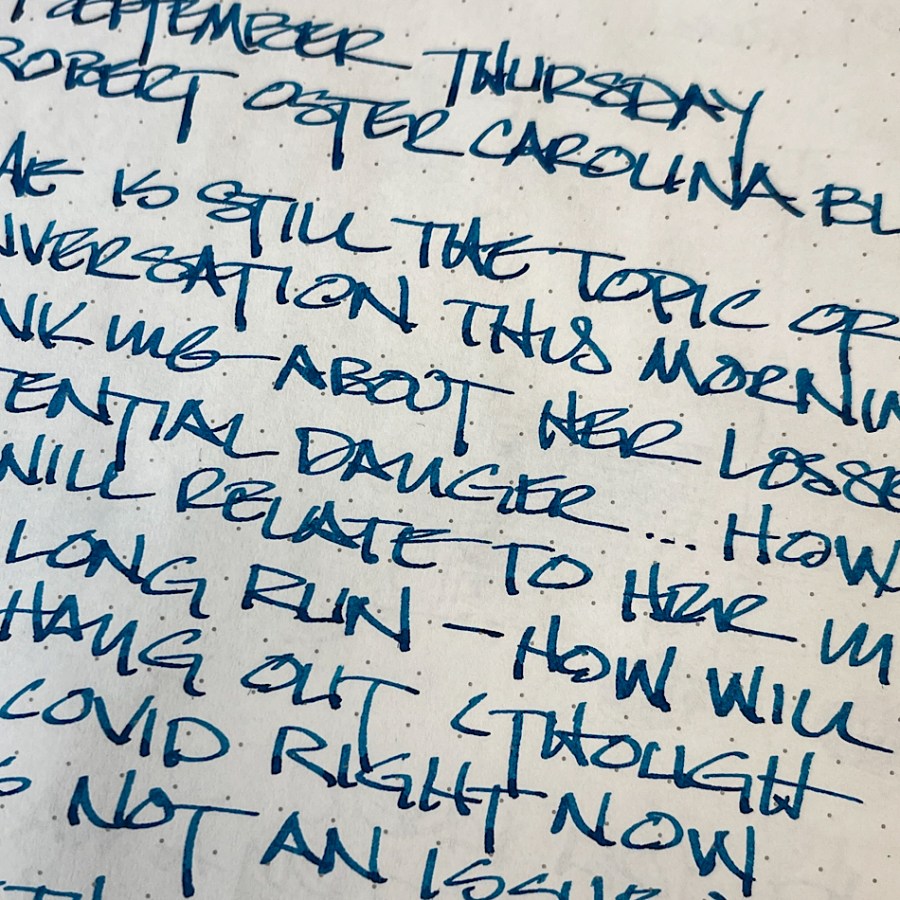 SEPTEMBER THURSDAY
ROBERT OSTER CAROLINA BL
IS STILL THE TOPIC OF
NVERSATION THIS MORNIN
NKING ABOUT HER LOSSE
TENTIAL DANGER ... HOW
WILL RELATE TO HER IN
LONG RUN - HOW WILL
HANG OUT (THOUGH
COVID RIGHT NOW
NOT AN ISSUE